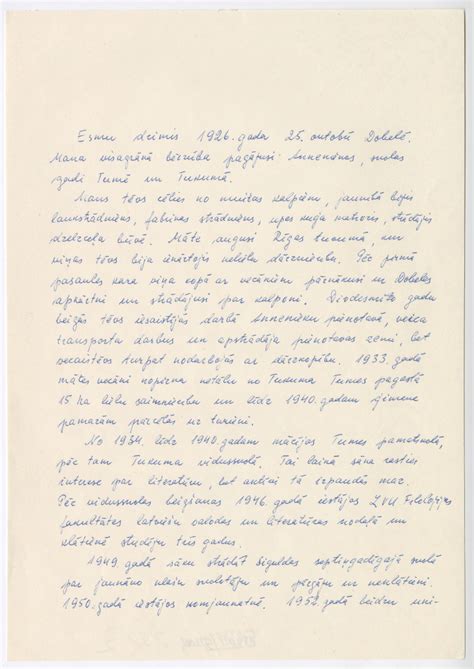 Esmu dzimis 1926. gada 25. oktobrī Dobelē.
Mana visagrākā bērnība pagājusi Anneniekos, skolas
gadi Tumē un Tukumā.
Mans tēvs cēlies no muižas kalpiem, jaunībā bijis
laukstrādnieks, fabrikas strādnieks, upes kuģa matrozis, strādājis
dzelzceļa būvē. Māte augusi Rīgas tuvumā, kur
viņas tēvs bija ierīkojis nelielu dārzniecību. Pēc pirmā
pasaules kara viņa kopā ar vecākiem pārnākusi uz Dobeles
apkārtni un strādājusi par kalponi. Divdesmito gadu
beigās tēvs iesaistījās darbā Annenieku pienotavā, veica
transporta darbus un apstrādāja pienotavas zemi, bet
vecaistēvs turpat nodarbojās ar dārzkopību. 1933. gadā
mātes vecāki nopirka netālu no Tukuma Tumes pagastā
15 ha lielu saimniecību un līdz 1940. gadam ģimene
pamazām pārcēlās uz turieni.
No 1934. līdz 1940. gadam mācījos Tumes pamatskolā,
pēc tam Tukuma vidusskolā. Tai laikā sāka rasties
interese par literatūru, bet autini tā izpaudās maz.
Pēc vidusskolas beigšanas 1946. gadā iestājos LVU Filoloģijas
fakultātes latviešu valodas un literatūras nodaļā un
klātienē studēju trīs gadus.
1949. gadā sāku strādāt Siguldas septiņgadīgajā skolā
par jaunāko klašu skolotāju un pārgāju uz neklātieni.
1950. gadā iestājos komjaunatnē. 1952. gadā beidzu uni-